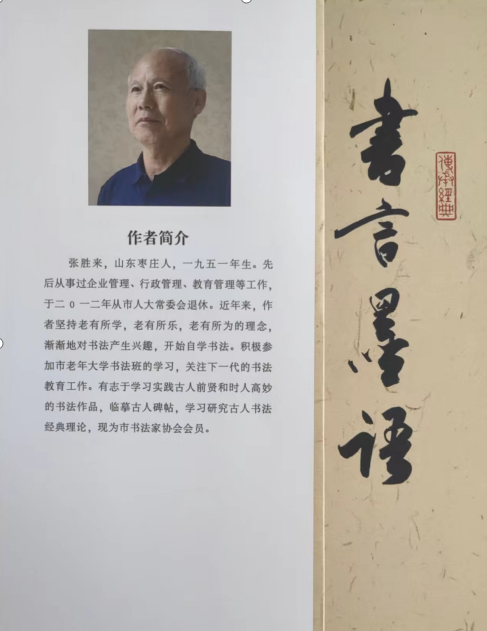 作者简介
张胜来，山东枣庄人，一九五一年生。先
后从事过企业管理、行政管理、教育管理等工作，
于二0一二年从市人大常委会退休。近年来，作
者坚持老有所学，老有所乐，老有所为的理念，
渐渐地对书法产生兴趣，开始自学书法。积极参
加市老年大学书法班的学习，关注下一代的书法
教育工作。有志于学习实践古人前贤和时人高妙
的书法作品，临摹古人碑帖，学习研究古人书法
经典理论，现为市书法家协会会员。
書言墨语